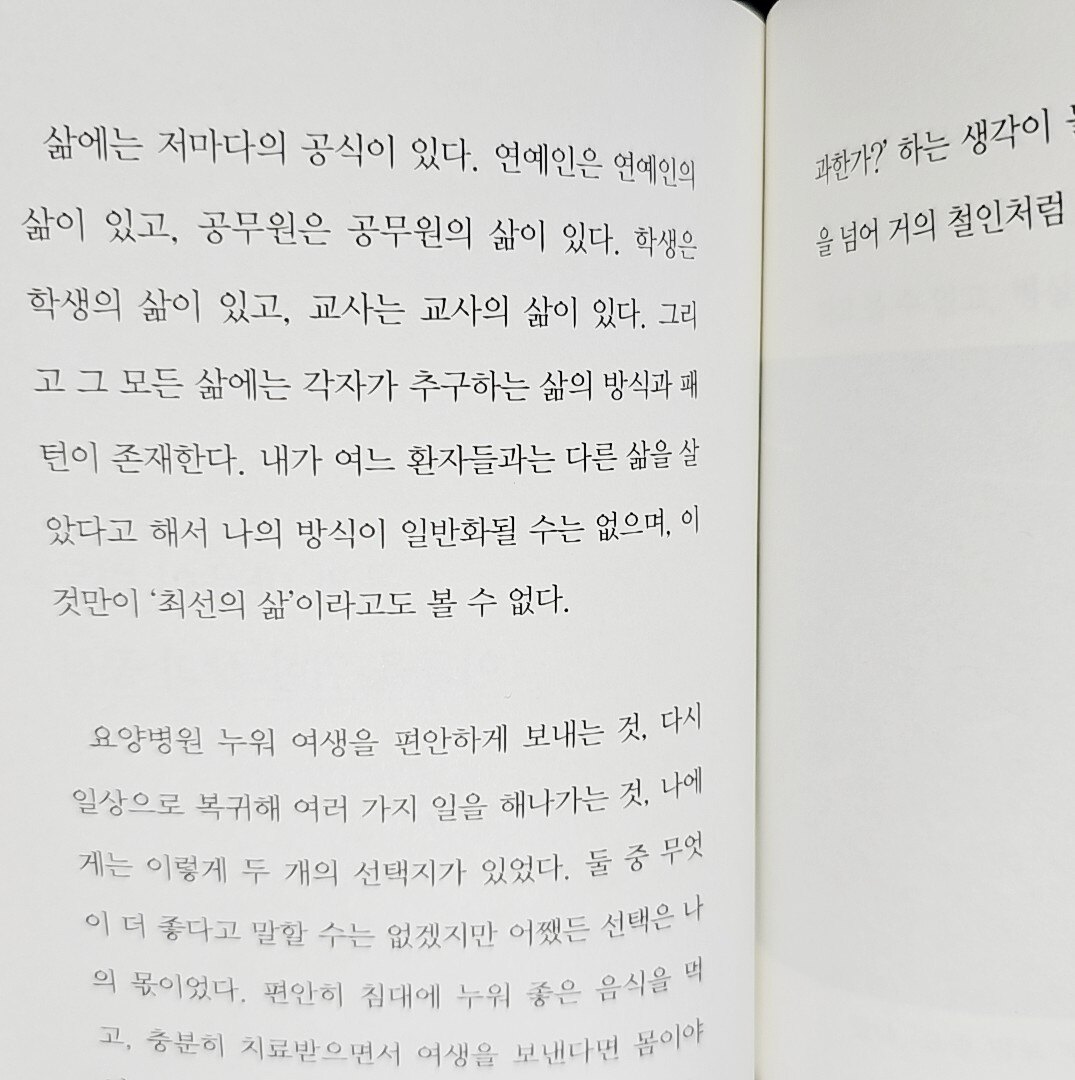 삶에는 저마다의 공식이 있다. 연예인은 연예인의
삶이 있고, 공무원은 공무원의 삶이 있다. 학생은
학생의 삶이 있고, 교사는 교사의 삶이 있다. 그리
고 그 모든 삶에는 각자가 추구하는 삶의 방식과 패
턴이 존재한다. 내가 여느 환자들과는 다른 삶을 살
았다고 해서 나의 방식이 일반화될 수는 없으며, 이
것만이 ‘최선의 삶’이라고도 볼 수 없다.
요양병원 누워 여생을 편안하게 보내는 것, 다시
일상으로 복귀해 여러 가지 일을 해나가는 것, 나에
게는 이렇게 두 개의 선택지가 있었다. 둘 중 무엇
이 더 좋다고 말할 수는 없겠지만 어쨌든 선택은 나
의 몫이었다. 편안히 침대에 누워 좋은 음식을 먹
고, 충분히 치료받으면서 여생을 보낸다면 몸이야
과한가?’ 하는 생각이
을 넘어 거의 철인처럼